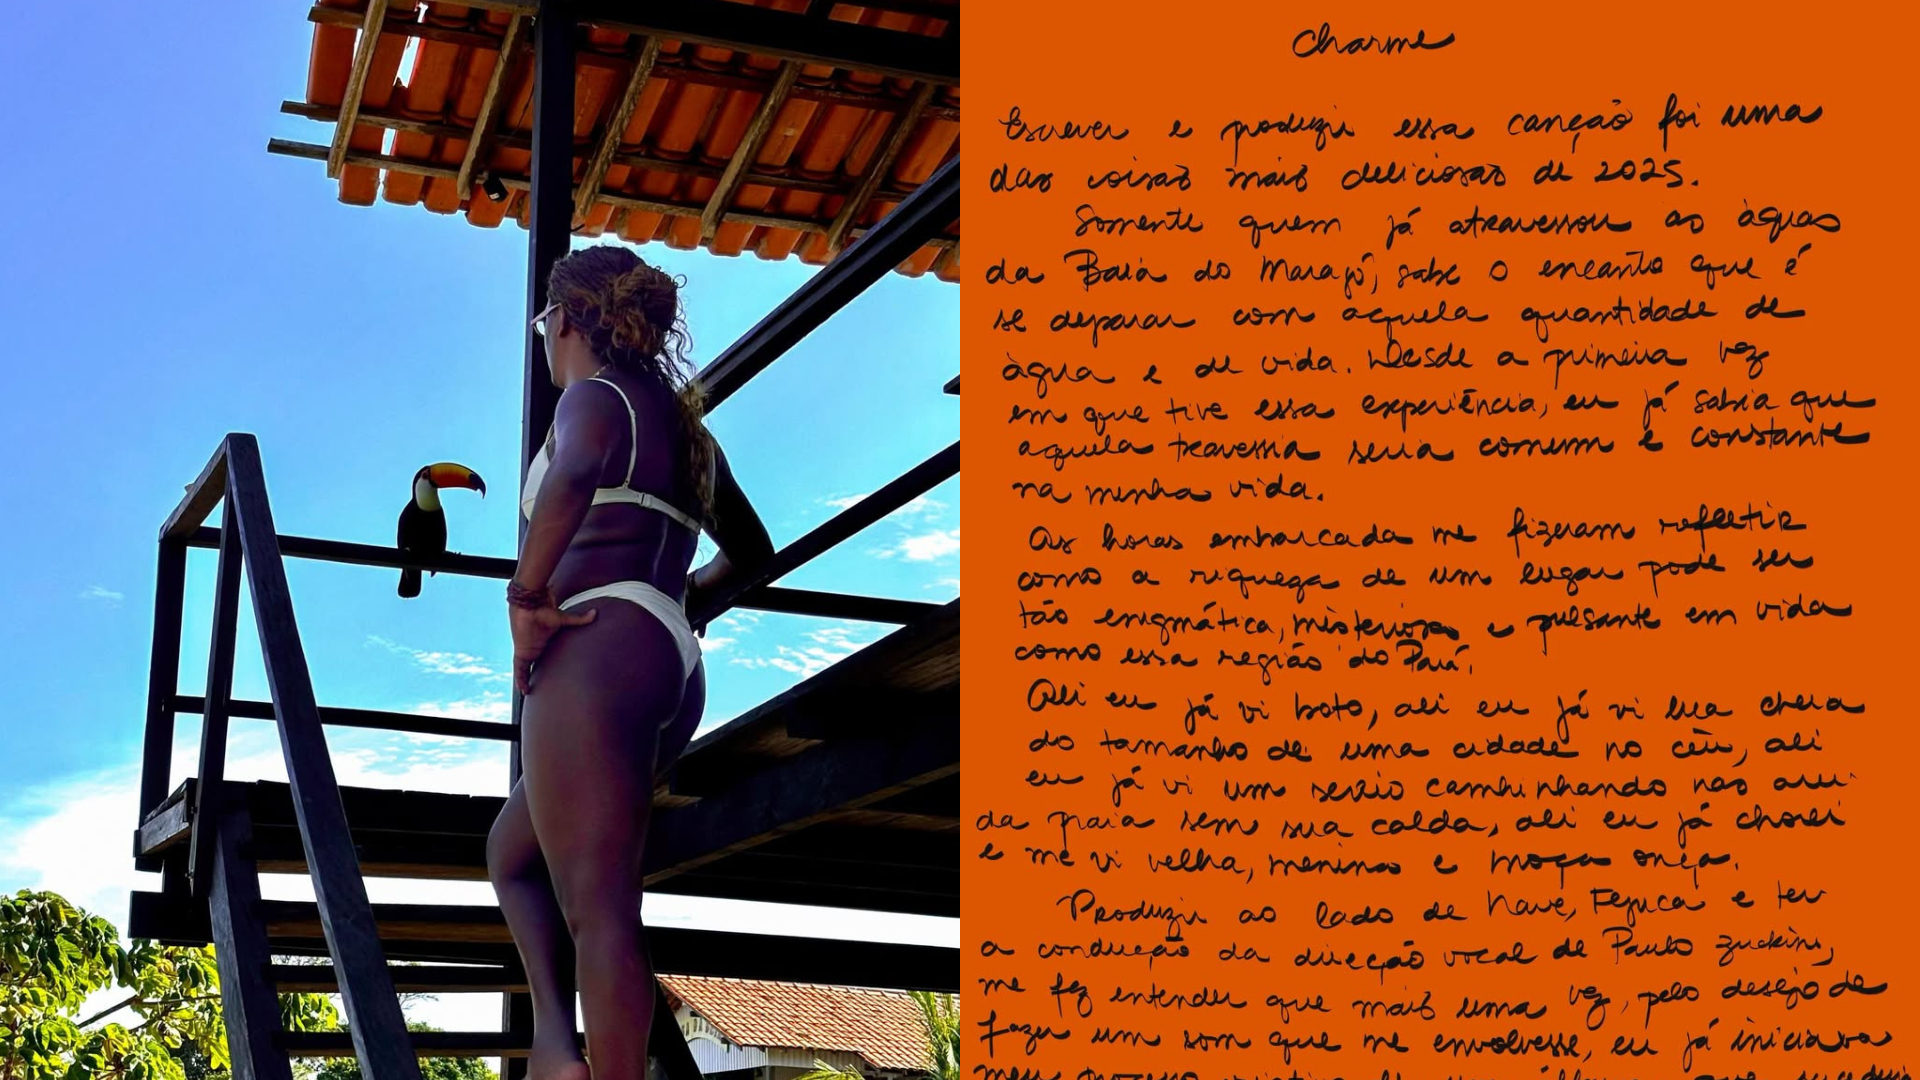 Charme
Escrever e produzir essa canção foi uma
das coisas mais deliciosas de 2025.
Somente quem já atravessou as àguas
da Baía do Marajó, sabe o encanto que é
se deparar com aquela quantidade de
àgua e de vida. Desde a primeira vez
em que tive essa experiência, eu já sabia que
aquela travessia seria comum e constante
na minha vida.
As horas embarcada me fizeram refletir
como a riqueza de um lugar pode ser
tão enigmática, misteriosa e pulsante em vida
como essa região do Pará.
Ali eu já vi boto, ali eu já vi lua cheia
do tamanho de uma cidade no céu, ali
eu já vi um sereio caminhando nas
da praia sem sua calda, ali eu já chorei
e me vi velha, menina e moça onça.
Produzir ao lado de Nave, Fejuca e ter
a condução da direção vocal de Paulo Zuckini,
me fez entender que mais uma vez, pelo desejo de
fazer um som que me envolvesse, eu já iniciava
meu processo